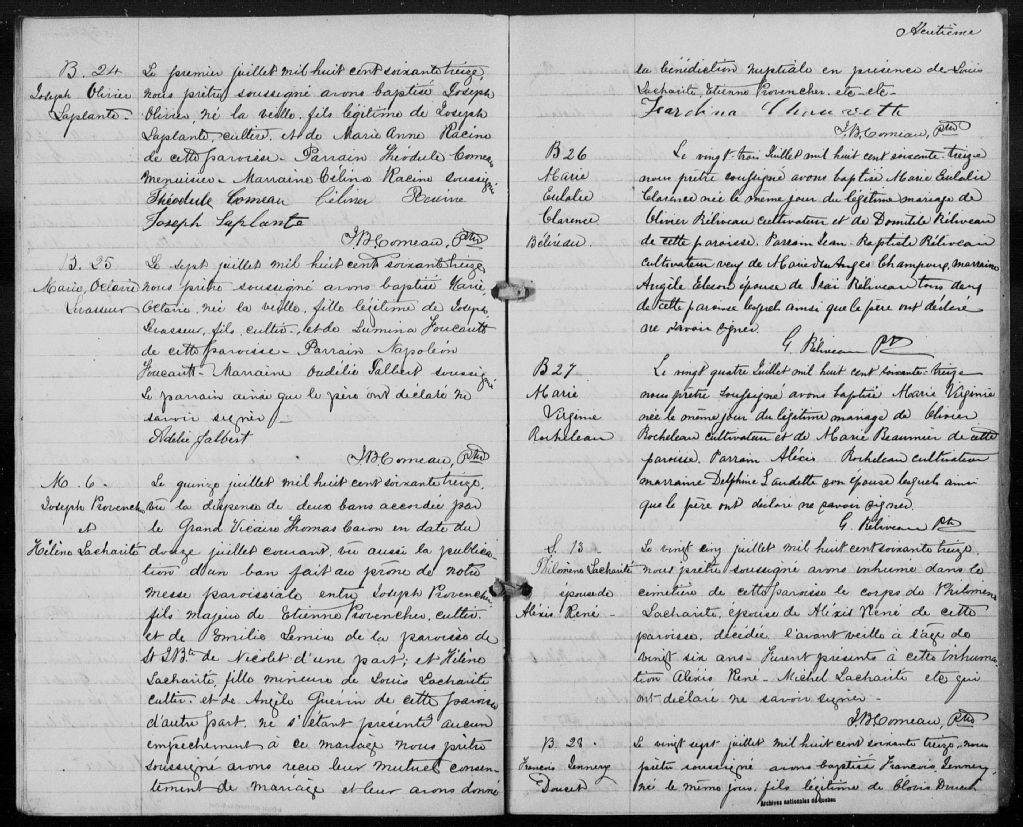 B. 24
Joseph Olivier
Laplante-
Le premier juillet mil huit cent soixante treize,
nous prêtre soussigné avons baptisé Joseph
Olivier, né la veille, fils légitime de Joseph
Laplante, cultiv. et de Marie Anne Racine
de cette paroisse- Parrain Théodule Comeau
menuisier- Marraine Célina Racine soussigné
Théodule Comeau Célina
Joseph Laplante
J.B. Comeau, Ptre
B. 25
Marie, Octavie
Levasseur
Le sept juillet mil huit cent soixante treize,
nous prêtre soussigné avons baptisé Marie,
Octavie, née la veille, fille légitime de Joseph
Levasseur, fils, cultiv. et de Lumina Foucault
de cette paroisse- Parrain Napoléon
Foucault- Marraine Oudélie Talbert soussigné
Le parrain ainsi que le père ont déclaré ne
savoir signer-
Adélie Talbert
J.B. Comeau, Ptre
M. 6-
Joseph Provencher
et
Hélène Lacharité
Le quinze juillet mil huit cent soixante treize,
vu la dispense de deux bans accordée par
le Grand Vicaire Thomas Caron en date du
douze juillet courant, vu aussi la publica-
tion d'un ban fait au prône de notre
messe paroissiale entre Joseph Provencher,
fils majeur de Etienne Provencher, cultiv.
et de Emilie Lemire de la paroisse de
St J.Bte de Nicolet d'une part; et Hélène
Lacharité, fille mineure de Louis Lacharité
cultiv. et de Angèle Guérin de cette paroisse
d'autre part, ne s'étant présenté aucun
empêchement à ce mariage nous prêtre
soussigné avons reçu leur mutuel consen-
tement de mariage et leur avons donné
la bénédiction nuptiale en présence de Louis
Lacharité, Etienne Provencher, etc- etc-
J.B. Comeau, Ptre
B26
Marie
Eulalie
Clarence
Béliveau.
Le vingt-trois Juillet mil huit cent soixante-treize
nous prêtre soussigné avons baptisé Marie Eulalie
Clarence née le même jour du légitime mariage de
Olivier Béliveau cultivateur et de Domitile Béliveau
de cette paroisse. Parrain Jean-Baptiste Béliveau
cultivateur veuf de Marie des Anges Champoux, marraine
Angèle épouse de Isaï Béliveau tous deux
de cette paroisse lesquels ainsi que le père ont déclaré
ne savoir signer.
G. Béliveau Ptre
B27
Marie
Virginie
Rocheleau
Le vingt quatre Juillet mil huit cent soixante-treize
nous prêtre soussigné avons baptisé Marie Virginie
née le même jour du légitime mariage de Olivier
Rocheleau cultivateur et de Marie Beaumier de cette
paroisse. Parrain Aléxis Rocheleau cultivateur
marraine Delphine Laudette son épouse lesquels ainsi
que le père ont déclaré ne savoir signer.
G. Béliveau Ptre
S. 13
Philomène Lacharité
épouse de
Aléxis René-
Le vingt cinq juillet mil huit cent soixante treize,
nous prêtre soussigné avons inhumé dans le
cimetière de cette paroisse le corps de Philomène
Lacharité, épouse de Aléxis René de cette
paroisse, décédée l'avant veille à l'âge de
vingt six ans- Furent présents à cette inhuma-
tion Alexis René- Michel Lacharité etc qui
ont déclaré ne savoir signer-
J.B. Comeau, Ptre
B. 28-
François
Doucet
Le vingt sept juillet mil huit cent soixante treize, nous
prêtre soussigné avons baptisé François
né le même jour, fils légitime de Clovis Doucet
Archives nationales du Québec